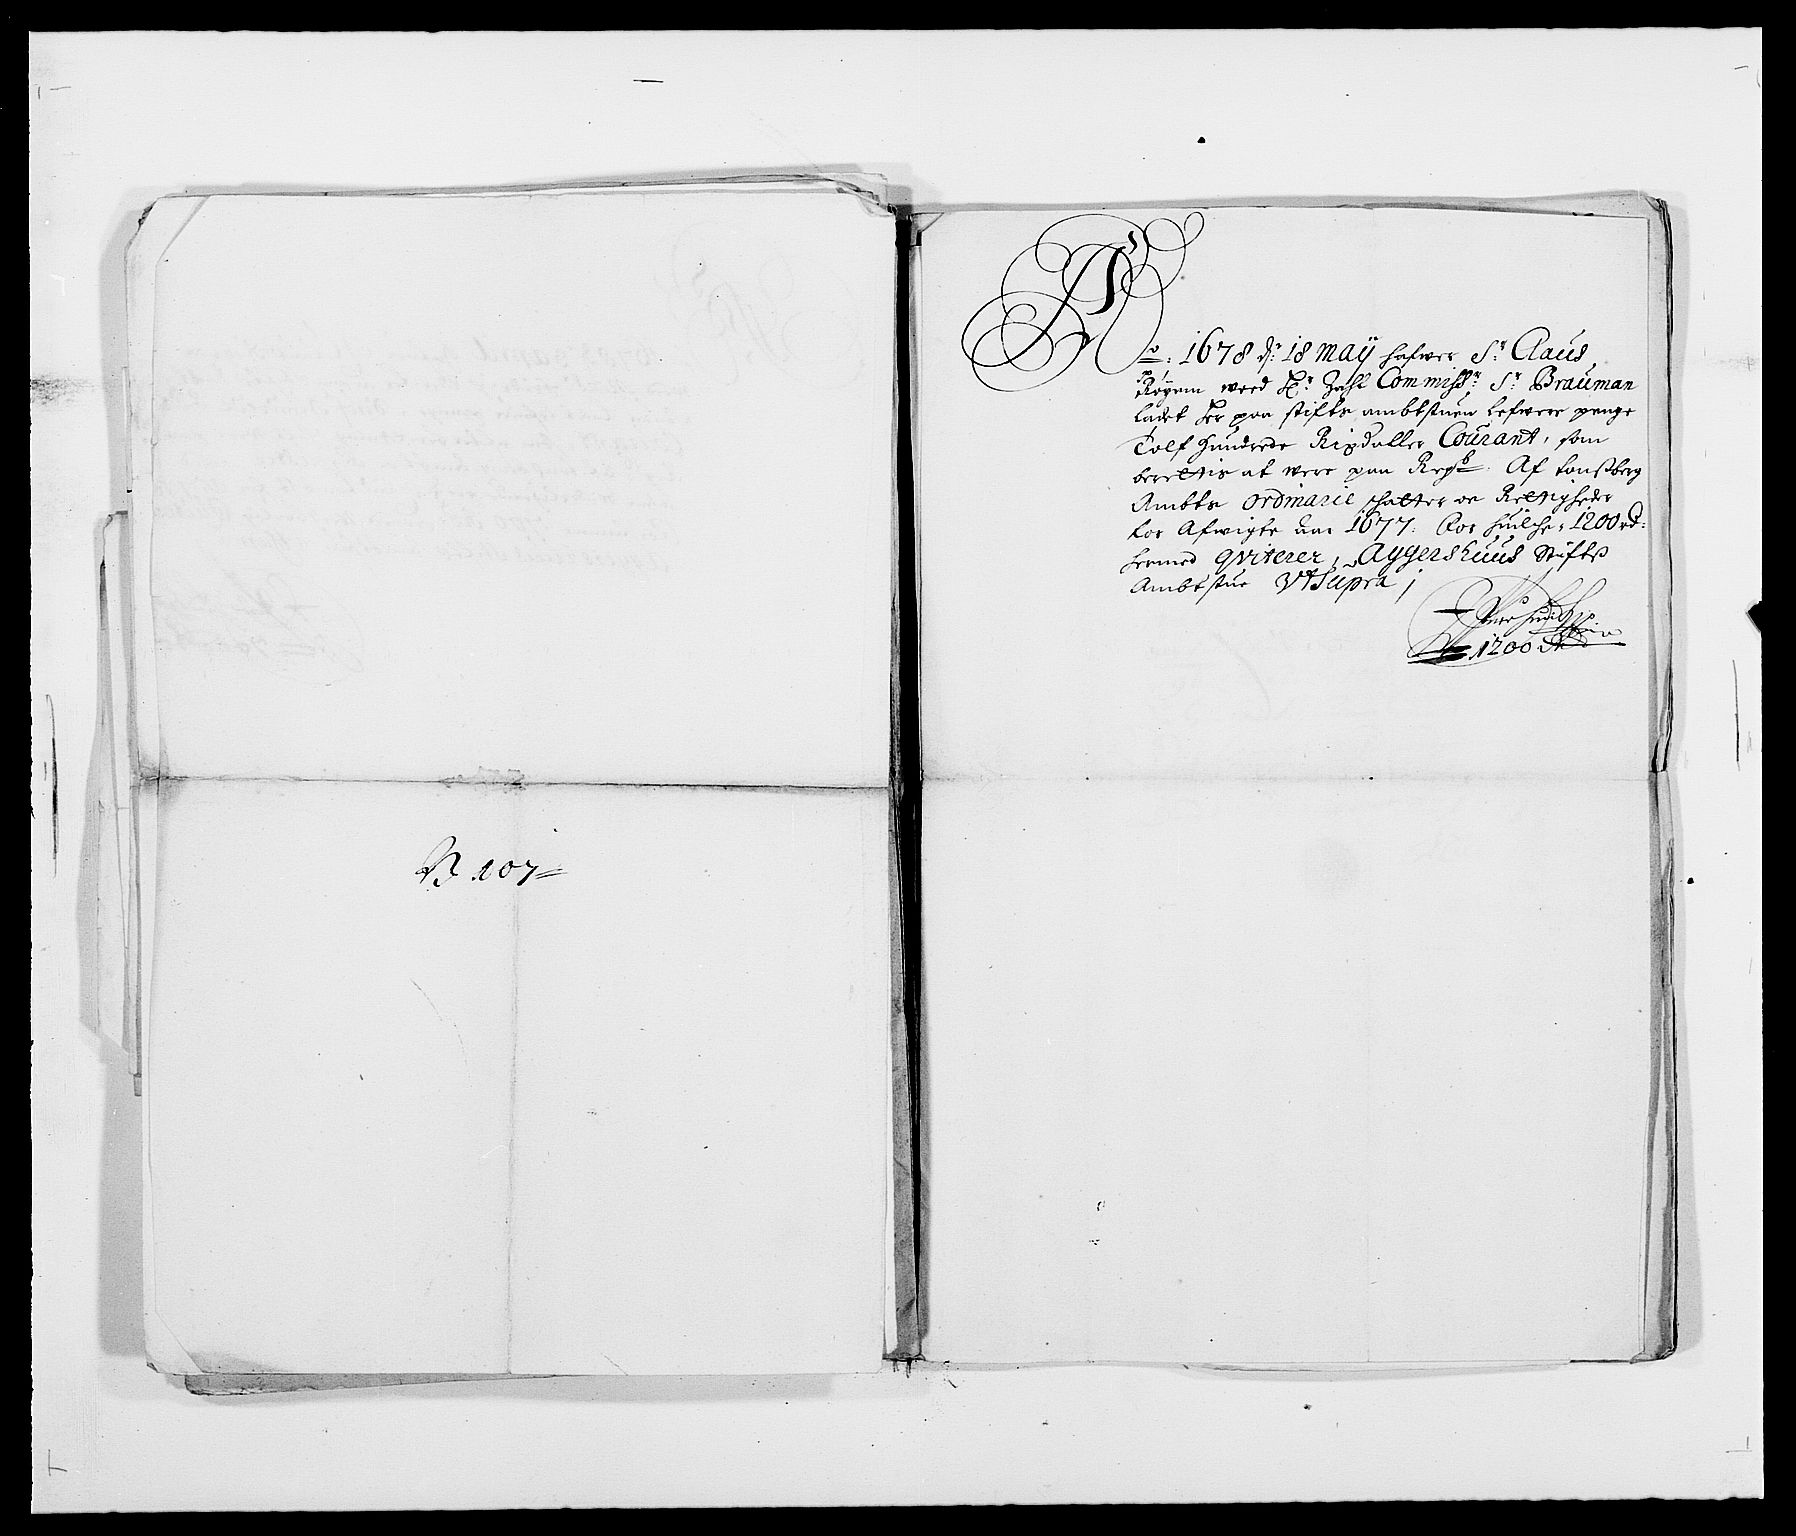 N 107
Ao: 1678 dr: 18 maÿ hafwer Sr: Claus
Røyem weed Hr: Zahl Commissr Sr Brauman
ladet her paa stifts ambtstuen lefwere penge
Tolf hundrede Rixdaller Courant, som
berettis at were paa Regb: Af tonsberg
Ambts ordinarie schatter oc Rettigheder
for Afwigte aar 1677: For huilche 1200 rd:
hermed qviterer, Aggershuus Stifts
Ambtstue Vt Supra
1200 Rd